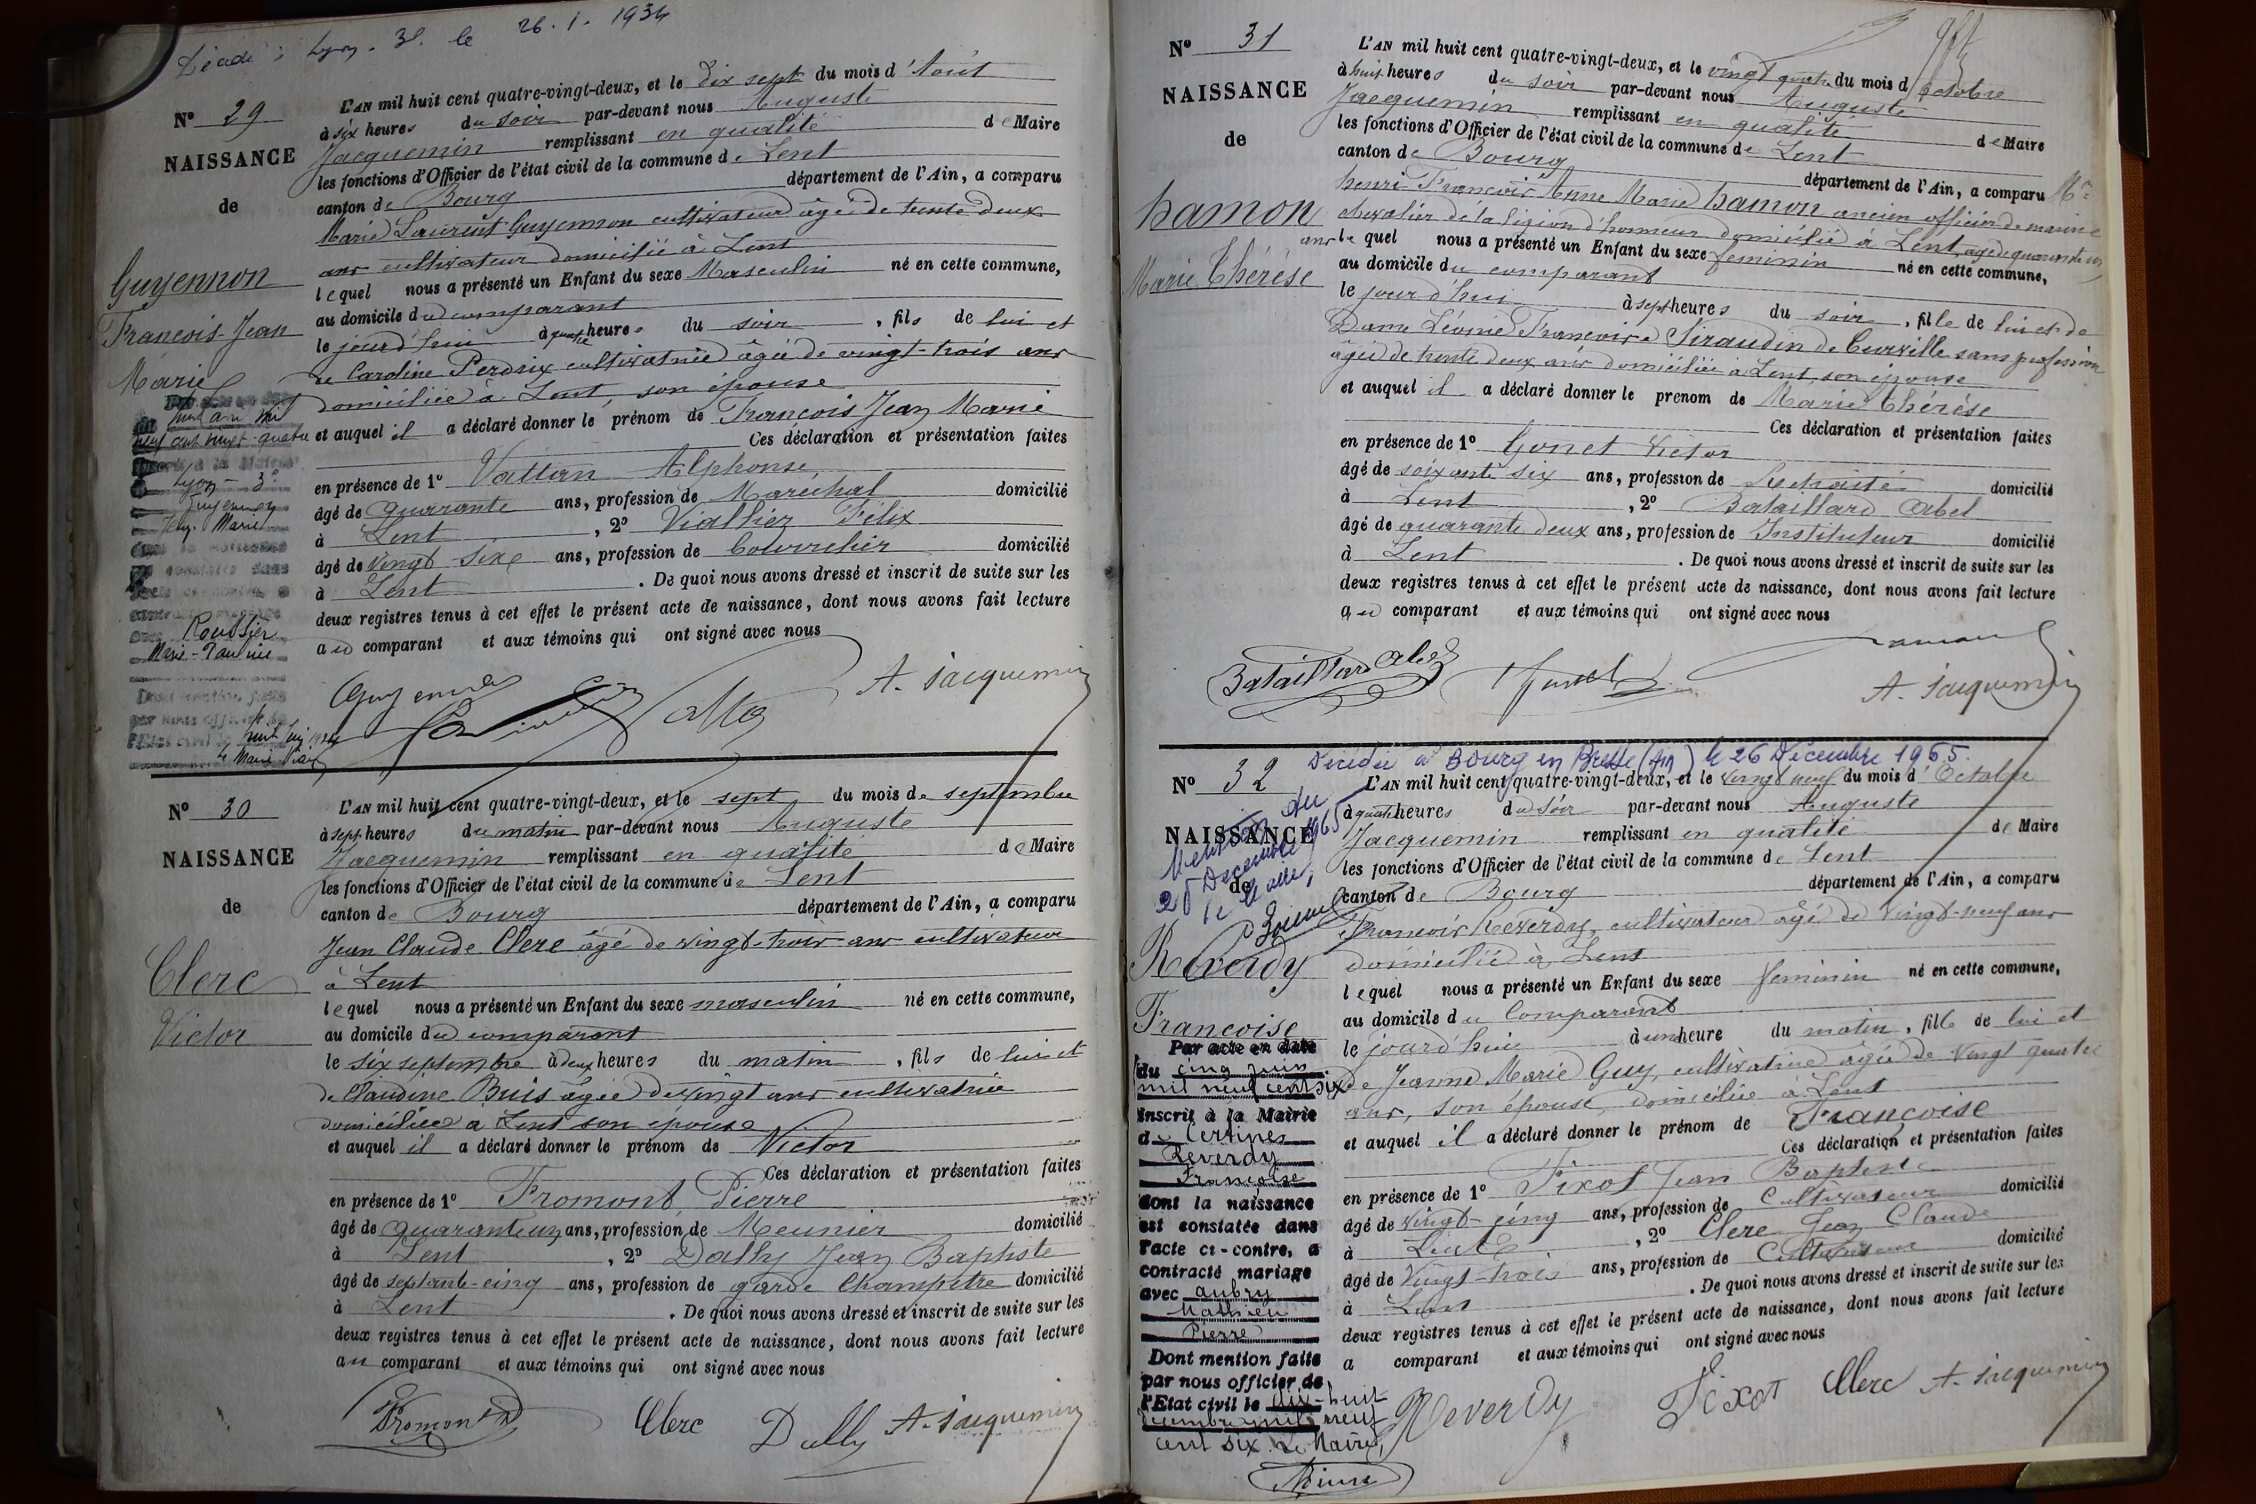 Lyon. 3e. le 26. 1. 1934
N° 29
NAISSANCE
de
Guyennon
François Jean
Marie
L'AN mil huit cent quatre-vingt-deux, et le dix sept du mois d'Août
à six heures du soir par-devant nous Auguste
Jacquemin remplissant en qualité de Maire
les fonctions d'Officier de l'état civil de la commune de Lent
canton de Bourg département de l'Ain, a comparu
Marie Laurent Guyennon cultivateur âgé de trente deux
ans cultivateur domicilié à Lent
lequel nous a présenté un Enfant du sexe Masculin né en cette commune,
au domicile du comparant
le jourd'hui à quatre heures du soir, fils de lui et
de Caroline Perdrix cultivatrice âgée de vingt-trois ans
domiciliée à Lent, son épouse
et auquel il a déclaré donner le prénom de François Jean Marie
Ces déclaration et présentation faites
en présence de 1° Vattan Alphonse
âgé de quarante ans, profession de Maréchal domicilié
à Lent, 2° Viallier Félix
âgé de vingt six ans, profession de bourrelier domicilié
à Lent. De quoi nous avons dressé et inscrit de suite sur les
deux registres tenus à cet effet le présent acte de naissance, dont nous avons fait lecture
au comparant et aux témoins qui ont signé avec nous
huit juin mil
neuf cent vingt-quatre
Lyon - 3e
Guyennon
Jean Marie
Roussier
Marie-Pauline
A. Jacquemin
N° 30
NAISSANCE
de
Clerc
Victor
L'AN mil huit cent quatre-vingt-deux, et le sept du mois de septembre
à sept heures du matin par-devant nous Auguste
Jacquemin remplissant en qualité de Maire
les fonctions d'Officier de l'état civil de la commune de Lent
canton de Bourg département de l'Ain, a comparu
Jean Claude Clerc âgé de vingt-trois ans cultivateur
à Lent
lequel nous a présenté un Enfant du sexe masculin né en cette commune,
au domicile du comparant
le six septembre à deux heures du matin, fils de lui et
de Claudine Buis âgée de vingt ans cultivatrice
domiciliée à Lent son épouse
et auquel il a déclaré donner le prénom de Victor
Ces déclaration et présentation faites
en présence de 1° Fromont Pierre
âgé de quarante un ans, profession de Meunier domicilié
à Lent, 2° Dally Jean Baptiste
âgé de septante-cinq ans, profession de garde Champêtre domicilié
à Lent. De quoi nous avons dressé et inscrit de suite sur les
deux registres tenus à cet effet le présent acte de naissance, dont nous avons fait lecture
au comparant et aux témoins qui ont signé avec nous
Fromont Clerc Dally A. Jacquemin
N° 31
NAISSANCE
de
hamon
Marie Thérèse
L'AN mil huit cent quatre-vingt-deux, et le vingt quatre du mois d'octobre
à huit heures du soir par-devant nous Auguste
Jacquemin remplissant en qualité de Maire
les fonctions d'Officier de l'état civil de la commune de Lent
canton de Bourg département de l'Ain, a comparu Mr
henri François Anne Marie hamon ancien officier de marine
chevalier de la légion d'honneur domicilié à Lent, âgé de quarante
ans lequel nous a présenté un Enfant du sexe feminin né en cette commune,
au domicile du comparant
le jourd'hui à sept heures du soir, fille de lui et de
Dame Léonie Françoise Siraudin de Curville sans profession
âgée de trente deux ans domiciliée à Lent, son épouse
et auquel il a déclaré donner le prenom de Marie Thérèse
Ces déclaration et présentation faites
en présence de 1° Gonet Victor
âgé de soixante six ans, profession de Retraité domicilié
à Lent, 2° Bataillard Abel
âgé de quarante deux ans, profession de Instituteur domicilié
à Lent. De quoi nous avons dressé et inscrit de suite sur les
deux registres tenus à cet effet le présent acte de naissance, dont nous avons fait lecture
au comparant et aux témoins qui ont signé avec nous
Bataillard Abel
A. Jacquemin
Décédée à Bourg en Bresse (Ain) le 26 Décembre 1965.
N° 32
NAISSANCE
de
Mention du
28 Décembre 1965
le Maire,
Reverdy
Françoise
L'AN mil huit cent quatre-vingt-deux, et le vingt neuf du mois d'Octobre
à quatre heures du soir par-devant nous Auguste
Jacquemin remplissant en qualité de Maire
les fonctions d'Officier de l'état civil de la commune de Lent
canton de Bourg département de l'Ain, a comparu
François Reverdy, cultivateur âgé de vingt-neuf ans
domicilié à Lent
lequel nous a présenté un Enfant du sexe feminin né en cette commune,
au domicile du Comparant
le jourd'hui à une heure du matin, fille de lui et
de Jeanne Marie Guy, cultivatrice âgée de vingt quatre
ans, son épouse, domiciliée à Lent
et auquel il a déclaré donner le prénom de Françoise
Ces déclaration et présentation faites
en présence de 1° Tixot Jean Baptiste
âgé de vingt-cinq ans, profession de Cultivateur domicilié
à Lent, 2° Clerc Jean Claude
âgé de vingt-trois ans, profession de Cultivateur domicilié
à Lent. De quoi nous avons dressé et inscrit de suite sur les
deux registres tenus à cet effet le présent acte de naissance, dont nous avons fait lecture
a comparant et aux témoins qui ont signé avec nous
Par acte en date
du cinq juin
mil neuf cent six
inscrit à la Mairie
de Certines
Reverdy
Françoise
dont la naissance
est constatée dans
l'acte ci-contre, a
contracté mariage
avec Aubry
Mathieu
Pierre
Dont mention faite
par nous officier de
l'Etat civil le dix-huit
décembre mil neuf
cent six. Le Maire,
Reverdy Tixot Clerc A. Jacquemin